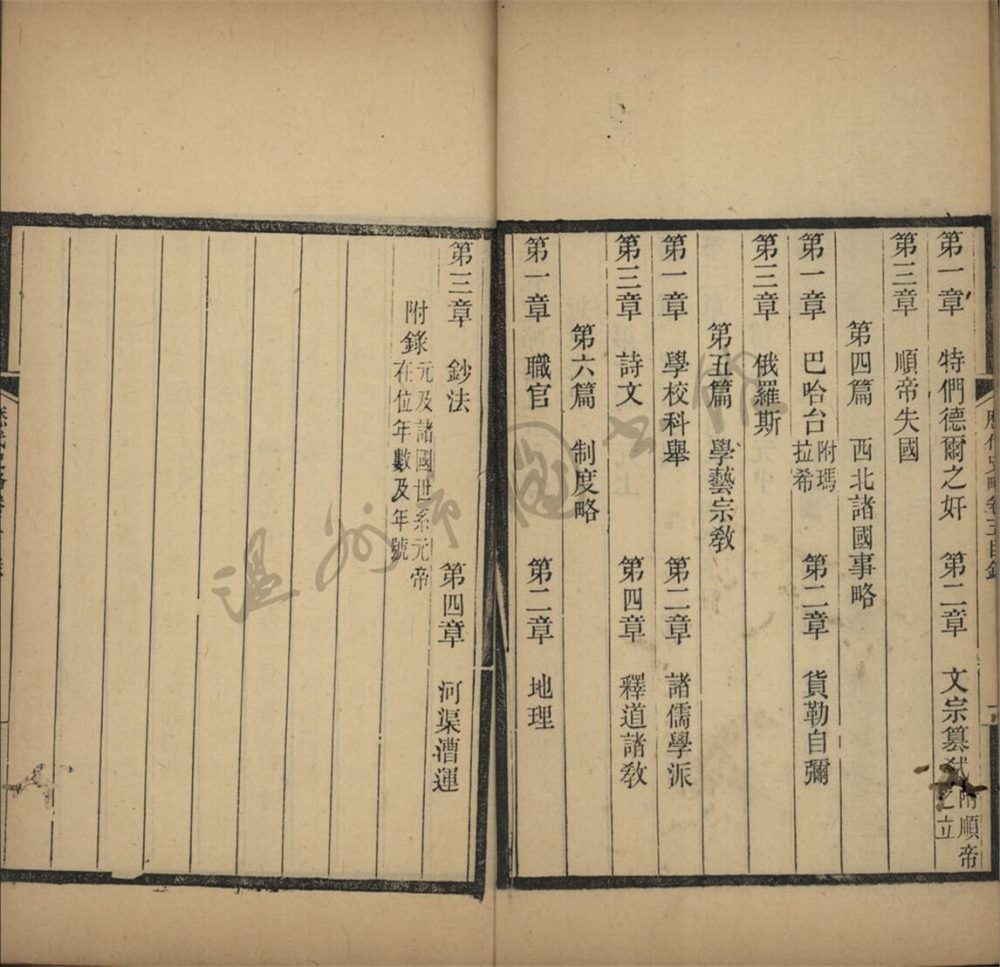 第一章 特們德爾之奸 第二章 文宗篡弑附順帝之立
第三章 順帝失國
第四篇 西北諸國事略
第一章 巴哈台附瑪拉希 第二章 貨勒自彌
第三章 俄羅斯
第五篇 學藝宗敎
第一章 學校科舉 第二章 諸儒學派
第三章 詩文 第四章 釋道諸敎
第六篇 制度略
第一章 職官 第二章 地理
第三章 鈔法 第四章 河渠漕運
附錄元及諸國世系元帝在位年數及年號